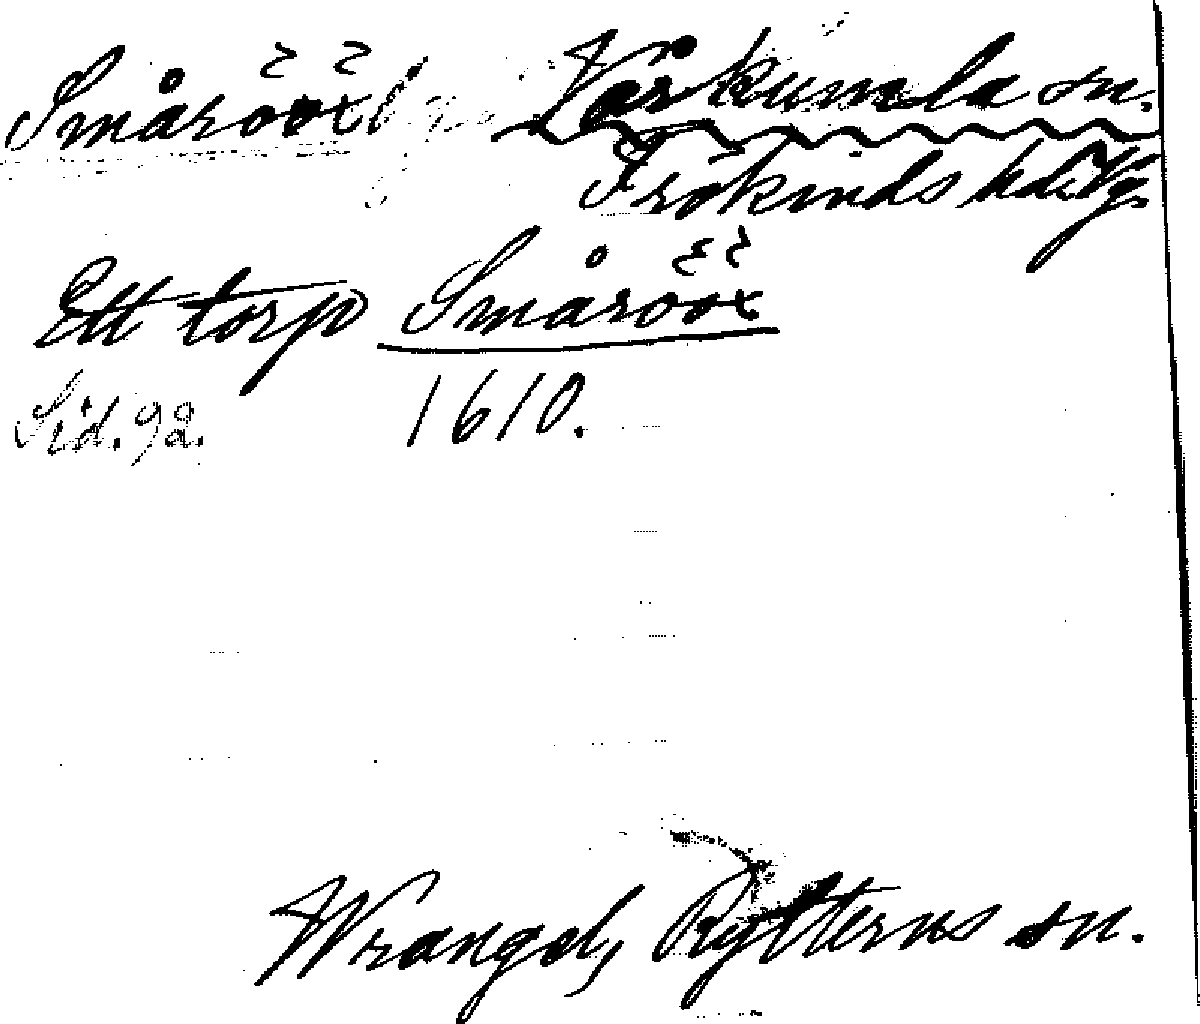 Småröö Vårkumla sn.
Frökinds hd. Vg.
Ett torp Smårööx
Sid. 92. 1610.
Wrangel, Rytterns sn.